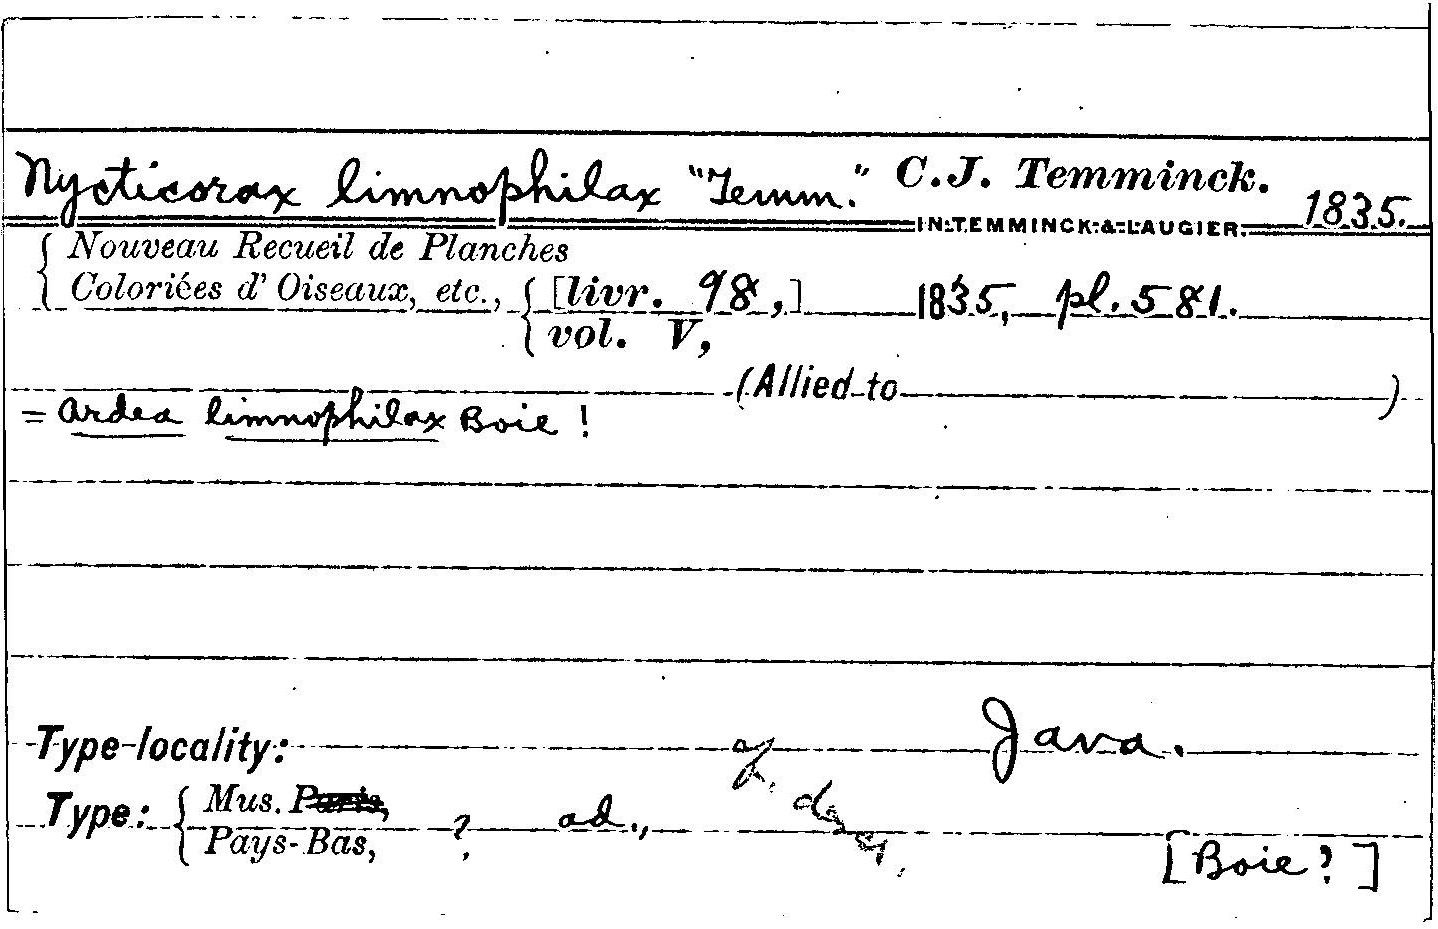 Nycticorax limnophilax "Temm." C.J. Temminck. 1835.
IN TEMMINCK & LAUGIER.
Nouveau Recueil de Planches
Coloriées d' Oiseaux, etc., [livr. 98,] 1835, pl. 581.
vol. V,
(Allied to )
= Ardea limnophilax Boie !
Type-locality: Java.
Type: Mus. Paris,
Pays-Bas, ? ad.,
[Boie?]